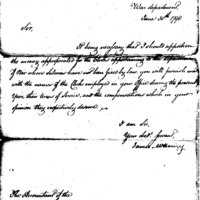 War department,
June 30th 1798.
Sir,
It being necessary that I should apportion
the money appropriated for Clerks appertaining to the departments
of War whose salaries have not been fixed by law you will furnish me
with the names of the Clerks employed in your Office during the present
year, their terms of Service, and the compensations which in your
opinion they respectively deserve.
I am Sir,
Your obt. Servant,
James
The Accountant of the